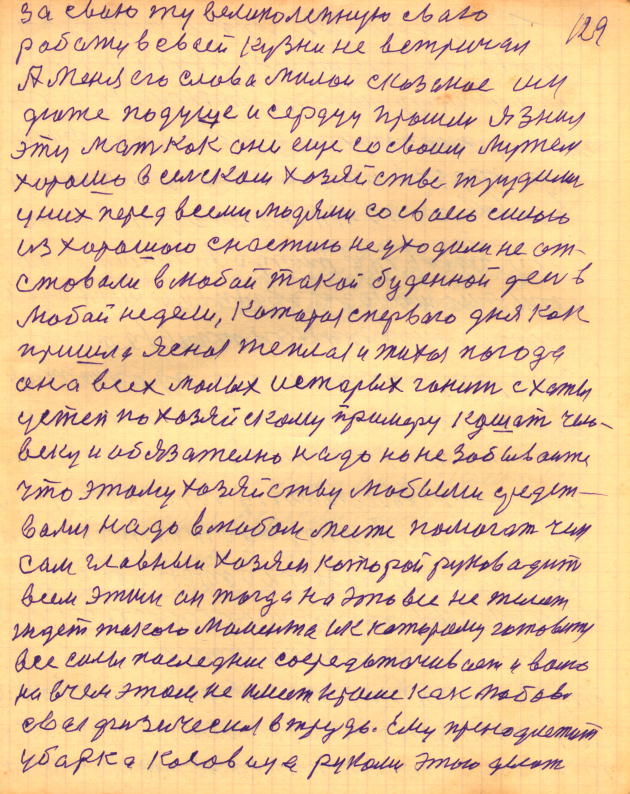 129
за сваю эту великолепную сваю
работу в своей кузни не встричал
А меня его слова милои сказаное им
даже подуще и сердцу прошли я знал
эту мат как они еще со своим мужем
хорошо в селском хозяйстве трудили
у них перед всеми людями со своею силою
из хорошого счастию не уходили не от-
стовали в любой такой буденной ден в
любой недели, которая с первого дня как
пришла ясная теплая и тихая погода
она всех малых и старых гонит с хаты
у степ по хозяйскому примеру кошат чело-
веку и обязателно надо но не забывайте
что этому хозяйству любыми средст-
вами надо в любом месте помогат чем
сам главный хозяен которой руководит
всем этим он тогда на это все не желает
ждет такого момента и к которому готовит
все силы последние сосредоточивает и
на в чем этом не имет кроме как любов
свая физическая в труде. Ему преподнетит
уборка косовица руками этого делат